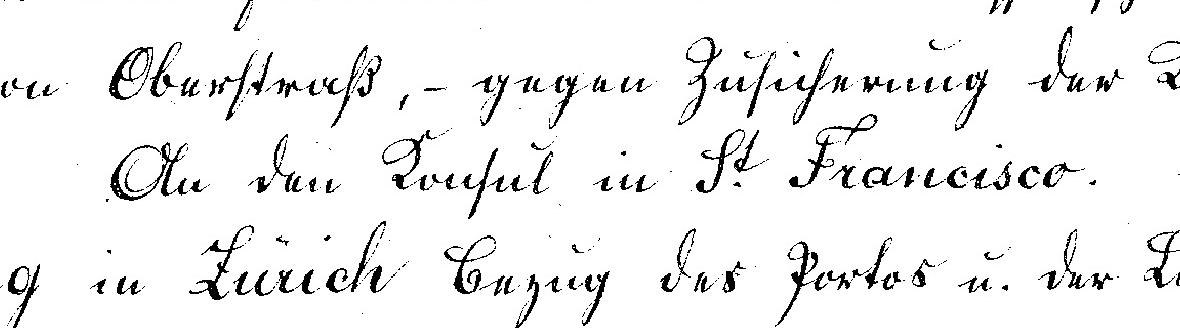 on Oberstraß, - gegen Zusicherung der
An den Konsul in St. Francisco.
g in Zürich Bezug des Portos u. der